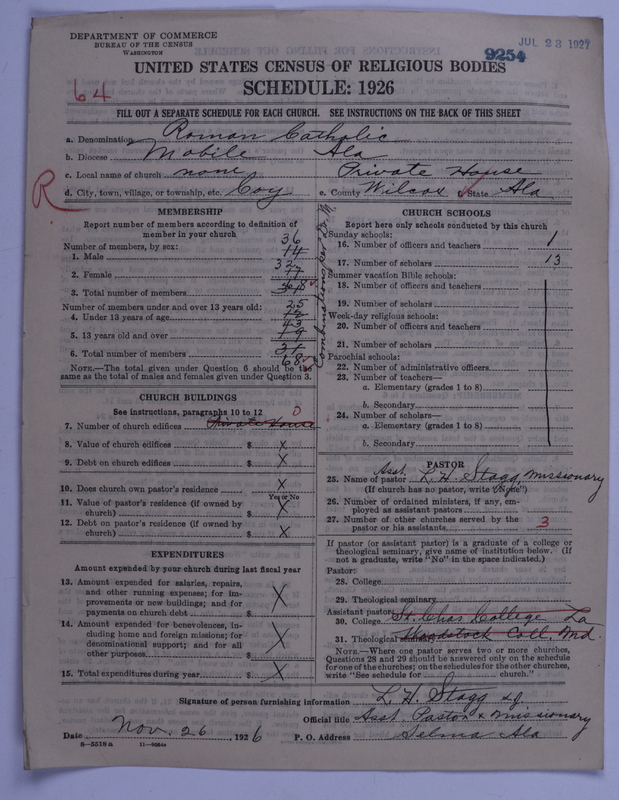 DEPARTMENT OF COMMERCE
BUREAU OF THE CENSUS
WASHINGTON
JUL 23 1927
9254
UNITED STATES CENSUS OF RELIGIOUS BODIES
SCHEDULE: 1926
64
FILL OUT A SEPARATE SCHEDULE FOR EACH CHURCH. SEE INSTRUCTIONS ON THE BACK OF THIS SHEET
a. Denomination Roman Catholic
b. Diocese Mobile Ala
c. Local name of church none Private House
R
d. City, town, village, or township, etc. Coy e. County Wilcox f. State Ala
MEMBERSHIP
Report number of members according to definition of
member in your church
Number of members, by sex:
36
1. Male 14
32
2. Female 17
68
3. Total number of members 31
Number of members under and over 13 years old:
25
4. Under 13 years of age 12
43
5. 13 years old and over 19
6. Total number of members 31
68
NOTE.—The total given under Question 6 should be the
same as the total of males and females given under Question 3.
CHURCH BUILDINGS
See instructions, paragraphs 10 to 12
0
7. Number of church edifices Private House
8. Value of church edifices $ X
9. Debt on church edifices $ X
10. Does church own pastor's residence X
Yes or No
11. Value of pastor's residence (if owned by
church) $ X
12. Debt on pastor's residence (if owned by
church) $ X
EXPENDITURES
Amount expended by your church during last fiscal year
13. Amount expended for salaries, repairs,
and other running expenses; for im-
provements or new buildings; and for
payments on church debt $ X
14. Amount expended for benevolences, in-
cluding home and foreign missions; for
denominational support; and for all
other purposes $ X
15. Total expenditures during year $ X
CHURCH SCHOOLS
Report here only schools conducted by this church
Sunday schools:
16. Number of officers and teachers 1
17. Number of scholars 13
Summer vacation Bible schools:
18. Number of officers and teachers
19. Number of scholars
Week-day religious schools:
20. Number of officers and teachers
21. Number of scholars
Parochial schools:
22. Number of administrative officers
23. Number of teachers—
a. Elementary (grades 1 to 8)
b. Secondary
24. Number of scholars—
a. Elementary (grades 1 to 8)
b. Secondary
PASTOR
Asst.
25. Name of pastor L. H. Stagg, missionary
(If church has no pastor, write "None")
26. Number of ordained ministers, if any, em-
ployed as assistant pastors
27. Number of other churches served by the
pastor or his assistants 3
If pastor (or assistant pastor) is a graduate of a college or
theological seminary, give name of institution below. (If
not a graduate, write "No" in the space indicated.)
Pastor:
28. College
29. Theological seminary
Assistant pastor:
30. College St. Chas College La
31. Theological Woodstock Coll. Md.
NOTE.—Where one pastor serves two or more churches,
Questions 28 and 29 should be answered only on the schedule
for one of the churches; on the schedules for the other churches,
write "See schedule for church."
Signature of person furnishing information L. H. Stagg sj.
Official title Asst. Pastor & missionary
Date Nov. 26, 1926 P. O. Address Selma Ala
8—5518a 11—9054a